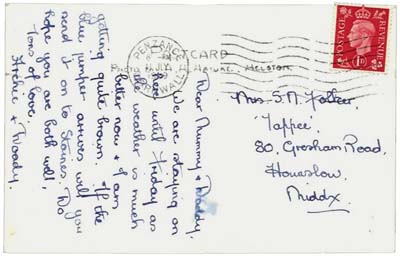 Dear Mummy & Daddy,
We are staying on
here until Friday as
the weather is much
better now & I am
getting quite brown. If the
blue jumper arrives will you
send it on to Staines. Do
hope you are both well,
Tons of love,
Archie & Woody.
PENZANCE
JLY
CORNWALL
CARD
HELSTON.
POSTAGE
REVENUE
1D
Mrs. S. M. Fowler
"Tappee"
80, Gresham Road,
Hounslow,
Middx